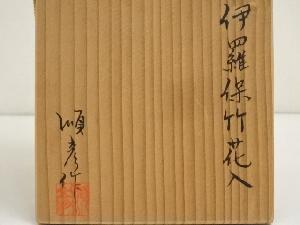 伊羅保竹花入
順彦作